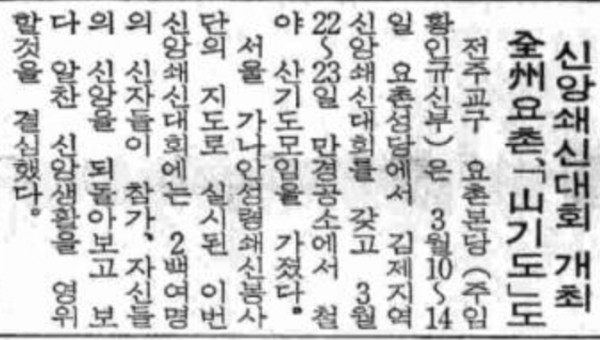 신앙쇄신대회 개최
全州요촌,「山기도」도
전주교구 요촌본당(주임
황인규신부)은 3월10~14
일 요촌성당에서 김제지역
신앙쇄신대회를 갖고 3월
22~23일 만경공소에서 철
야 산기도모임을 가졌다.
서울 가나안성령쇄신봉사
단의 지도로 실시된 이번
신앙쇄신대회에는 2백여명
의 신자들이 참가, 자신들
의 신앙을 되돌아보고 보
다 알찬 신앙생활을 영위
할것을 결심했다.